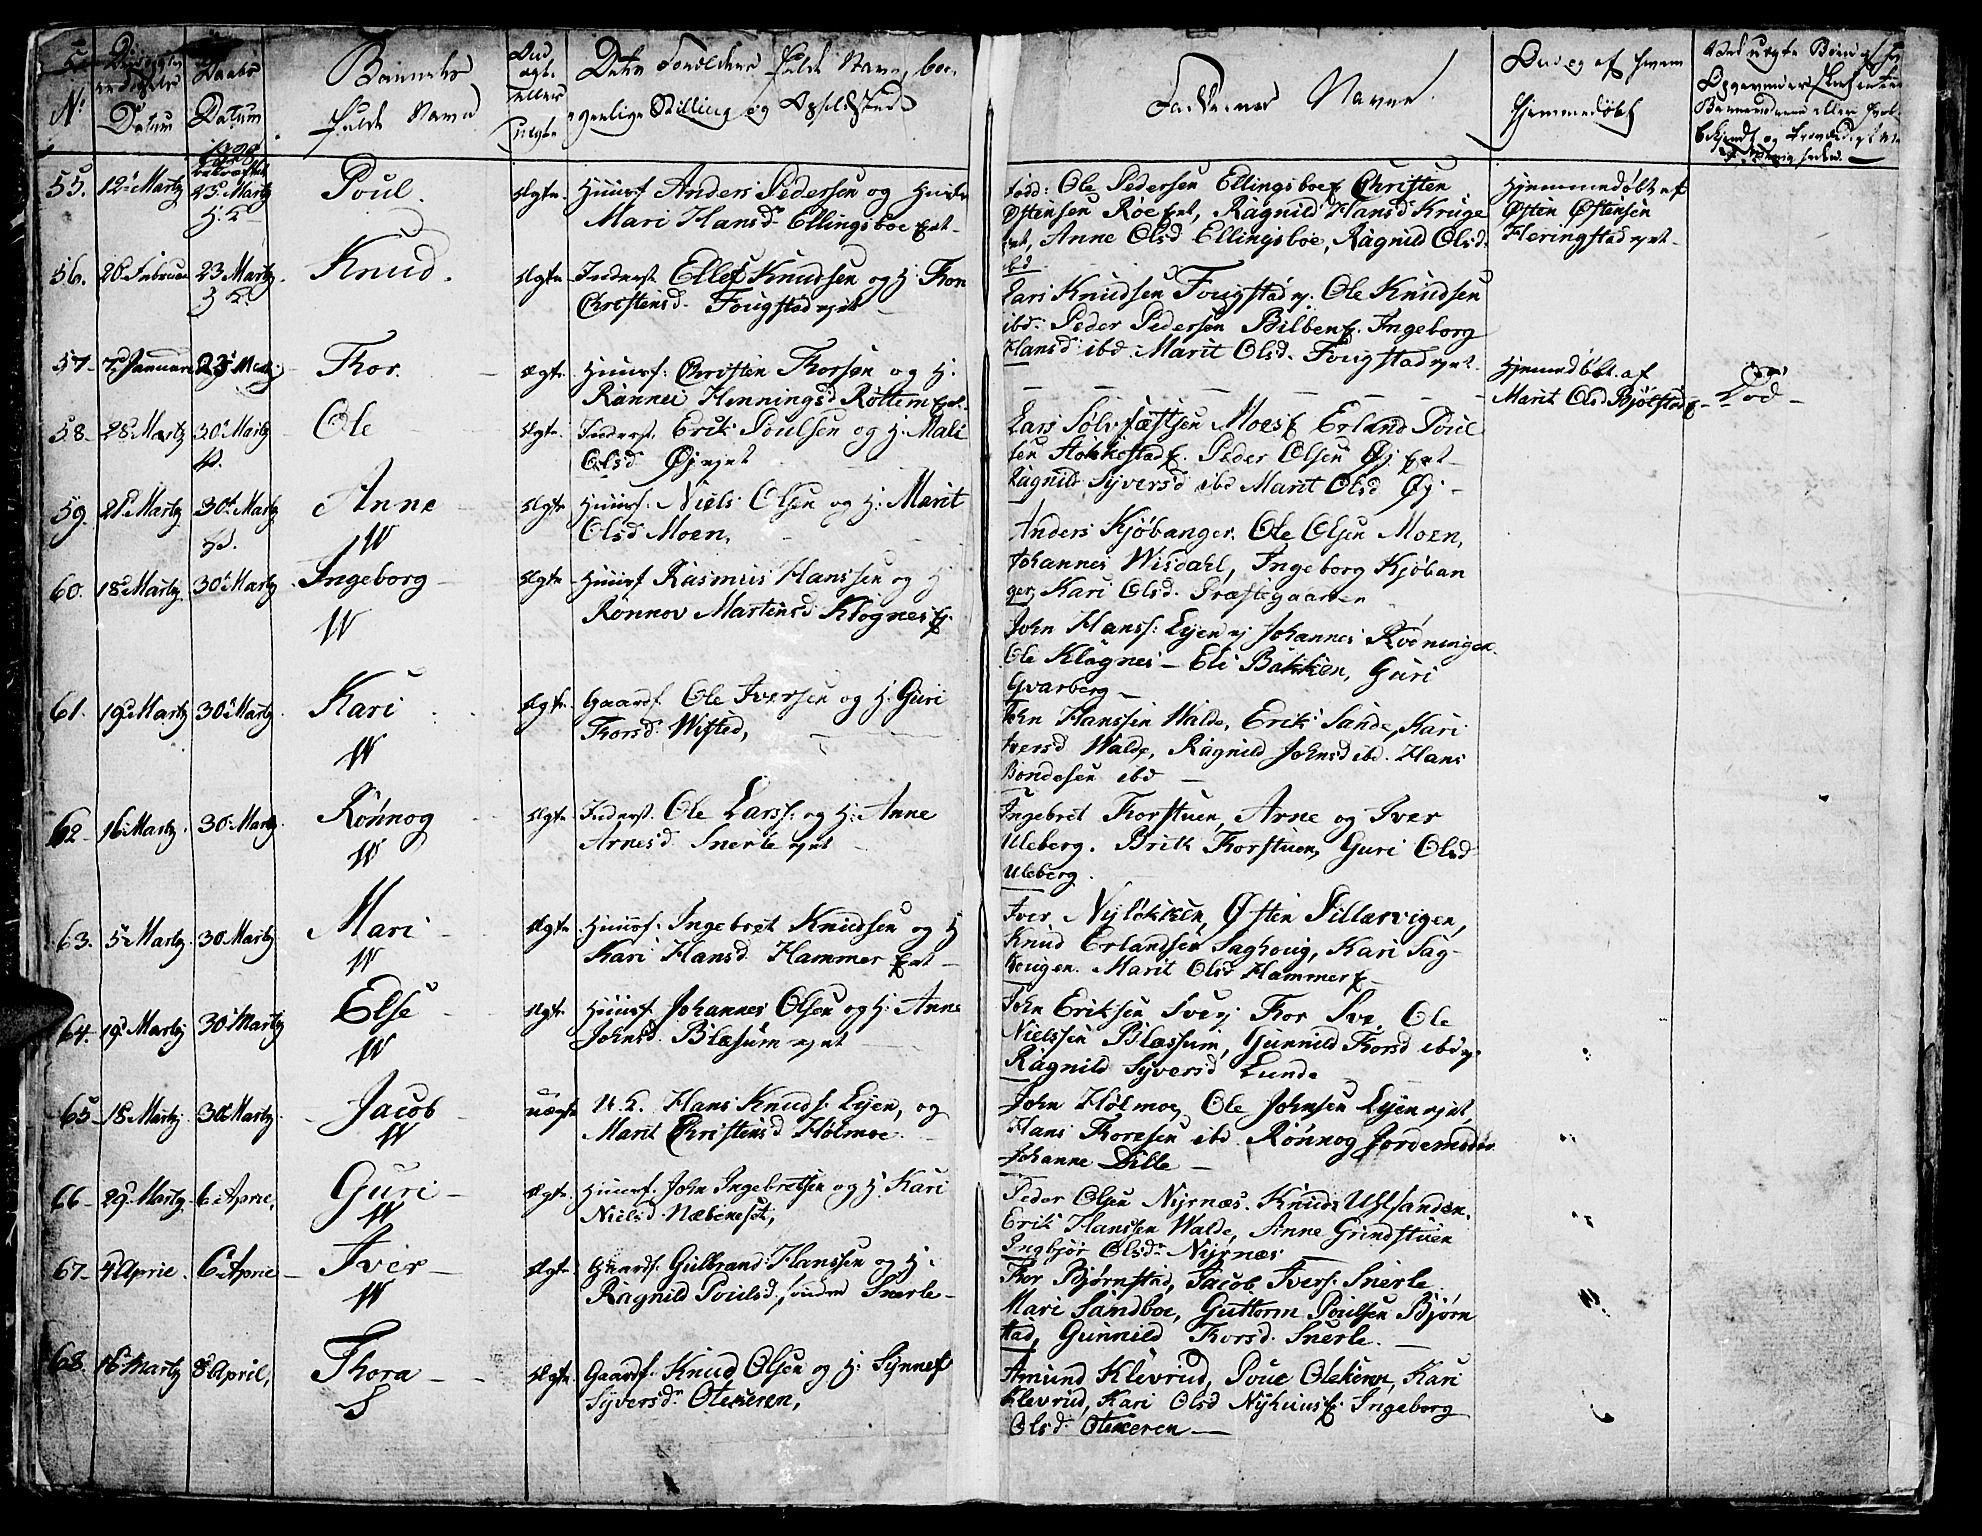 No
Datum
Datum
Barnets
fulde Navn
Deres Forældres fulde Navn, bor-
gerlige Stilling og Opholdsted
Faddernes Navne.
Hjemmedøbt
55. 12 Martz 23 Martz Poul. Ægte Huusf Anders Pedersen og
Mari Hansd. Ellingsboe
Ole Pedersen Ellingsboe Christen
Østensen Røe, Ragnild Hansd Kruge
Anne Olsd Ellingsboe, Ragnild Olsd.
ibd
Hjemmedøbt af
Østen Østensen
Heringstad
56. 26 Februar 23 Martz. Knud. Ægte Inderst Ellef Knudsen og H:
Christensd. Fougstad
Lari Knudsen Fougstad. Ole Knudsen
ibd: Peder Pedersen Bilben. Ingeborg
Hansd ibd. Marit Olsd. Fougstad
57. 7 Januar 23 Martz Thor. Ægte Huusf: Christen Thorsen og H.
Rannei Henningsd Rottem
Hjemmedøbt af
Marit Olsd Bjølstad
Død
58. 28 Martz 30 Martz Ole Ægte Inderst. Erik Poulsen og H. Mali
Olsd Øy
Lars Sølvfæstsen Moes Erland Poul
sen Stokkestad. Peder Olsen Øy
Ragnild Syversd ibd Marit Olsd Øy
59. 21 Martz 30 Martz Anne Ægte Huusf: Niels Olsen og H: Marit
Olsd Moen,
W
Anders Kjøbanger. Ole Olsen Moen,
Johannes Wisdahl, Ingeborg Kjøban
ger, Kari Olsd. Præstegaarden
60. 18 Martz 30 Martz Ingeborg Ægte Huusf Rasmus Hanssen og H
Ronnov Martensd Klognes
W
John Hanss: Lyen Johannes Rødningen.
Ole Klagnes - Eli Bakken, Guri
Qvarberg
61. 19 Martz 30 Martz Kari Ægte Gaardf. Ole Iversen og H. Guri
Thorsd. Wisted,
W
John Hanssen Walde, Erik Sande, Kari
Iversd Walde, Ragnild Johnsd ibd. Hans
Bondesen ibd
62 16 Martz. 30 Martz Rønnog Ægte Inderst. Ole Larss: og H: Anne
Arnesd. Snerle
W
Ingebret Thorstuen, Arne og Iver
Uleberg. Brit Thorstuen, Guri Olsd
Uleberg.
63. 5 Martz 30 Martz Mari Ægte Huusf. Ingebret Knudsen og H
Kari Hansd. Hammer
W
Iver Nyløkken, Østen Sillarvigen,
Knud Erlandsen Saghoug, Kari Sag-
hougen. Marit Olsd Hammer
64. 19 Martz 30 Martz Else Ægte Huusf. Johannes Olsen og H. Anne
Johnsd. Blæsum
W
John Eriksen Sve Thor Sve, Ole
Nielssen Blæssum, Gunnild Thorsd ibd
Ragnild Syversd Lunde
65 18 Martz 30 Martz. Jacob uægte U.K. Hans Knuds. Lyen, og
Marit Christensd Holmoe
W
John Holmoe, Ole Johnsen Lyen
Hans Thoresen ibd. Rønnog Jordemoder
Johanne Lille
66 29 Martz 6 Apriel. Guri Ægte. Huusf. John Ingebretsen og H. Kari
Nielsd. Næbeneset,
W
Peder Olsen Nyrnæs. Knud Uhlsanden.
Erik Hanssen Walde, Anne Grindstuen
Ingbjør Olsd. Nyrnæs
67 4 Apriel. 6 Apriel Iver Ægte Gaardf. Gulbrand Hanssen og H.
Ragnild Poulsd, søndre Snerle
W
Thor Bjørnstad, Jacob Ivers. Snerle
Mari Sandboe, Guttorm Poulsen Bjørn
stad, Gunnild Thorsd. Snerle.
68. 16 Martz 8 April, Thora Ægte Gaardf. Knud Olsen og H: Synnef
Syversd. Oteкeren,
S
Amund Klevrud, Poul Otekeren, Kari
Klevrud, Kari Olsd Nyhuus. Ingeborg
Olsd. Otekeren